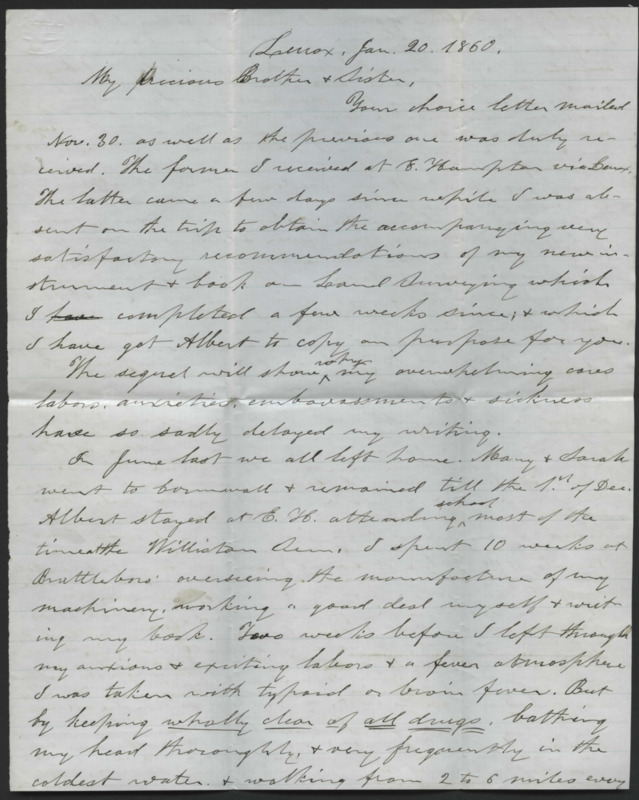 Lenox, Jan. 20. 1860.
My precious Brother & Sister,
Your choice letter mailed
Nov. 30. as well as the previous one was duly re-
ceived. The former I received at E. Hampton via Lenox.
The latter came a few days since while I was ab-
sent on the trip to obtain the accompanying very
satisfactory recommendations of my new in-
strument & book on Land Surveying which
I have completed a few weeks since; & which
I have got Albert to copy on purpose for you.
The sequel will show why my overwhelming cares
labors, anxieties, embarassments & sickness
have so sadly delayed my writing.
In June last we all left home. Mary & Sarah
went to Cornwall & remained till the 1st of Dec.
Albert stayed at E. H. attending school most of the
time at the Williston Sem. I spent 10 weeks at
Brattleboro overseeing the manufacture of my
machinery, working a good deal myself & writ-
ing my book. Two weeks before I left through
my anxious & exciting labors & a fever atmosphere
I was taken with typoid or brain fever. But
by keeping wholly clear of all drugs, bathing
my head thoroughly, & very frequently in the
coldest water. & walking from 2 to 6 miles every